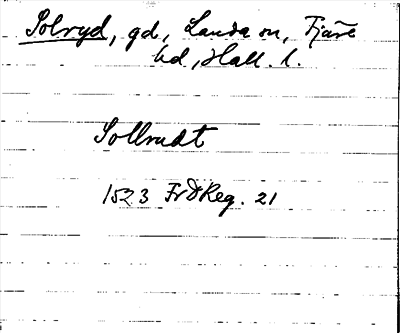 Solryd, gd, Landa sn, Fjäre
hd, Hall. l.
Sollrudt
1523 FrdReg. 21